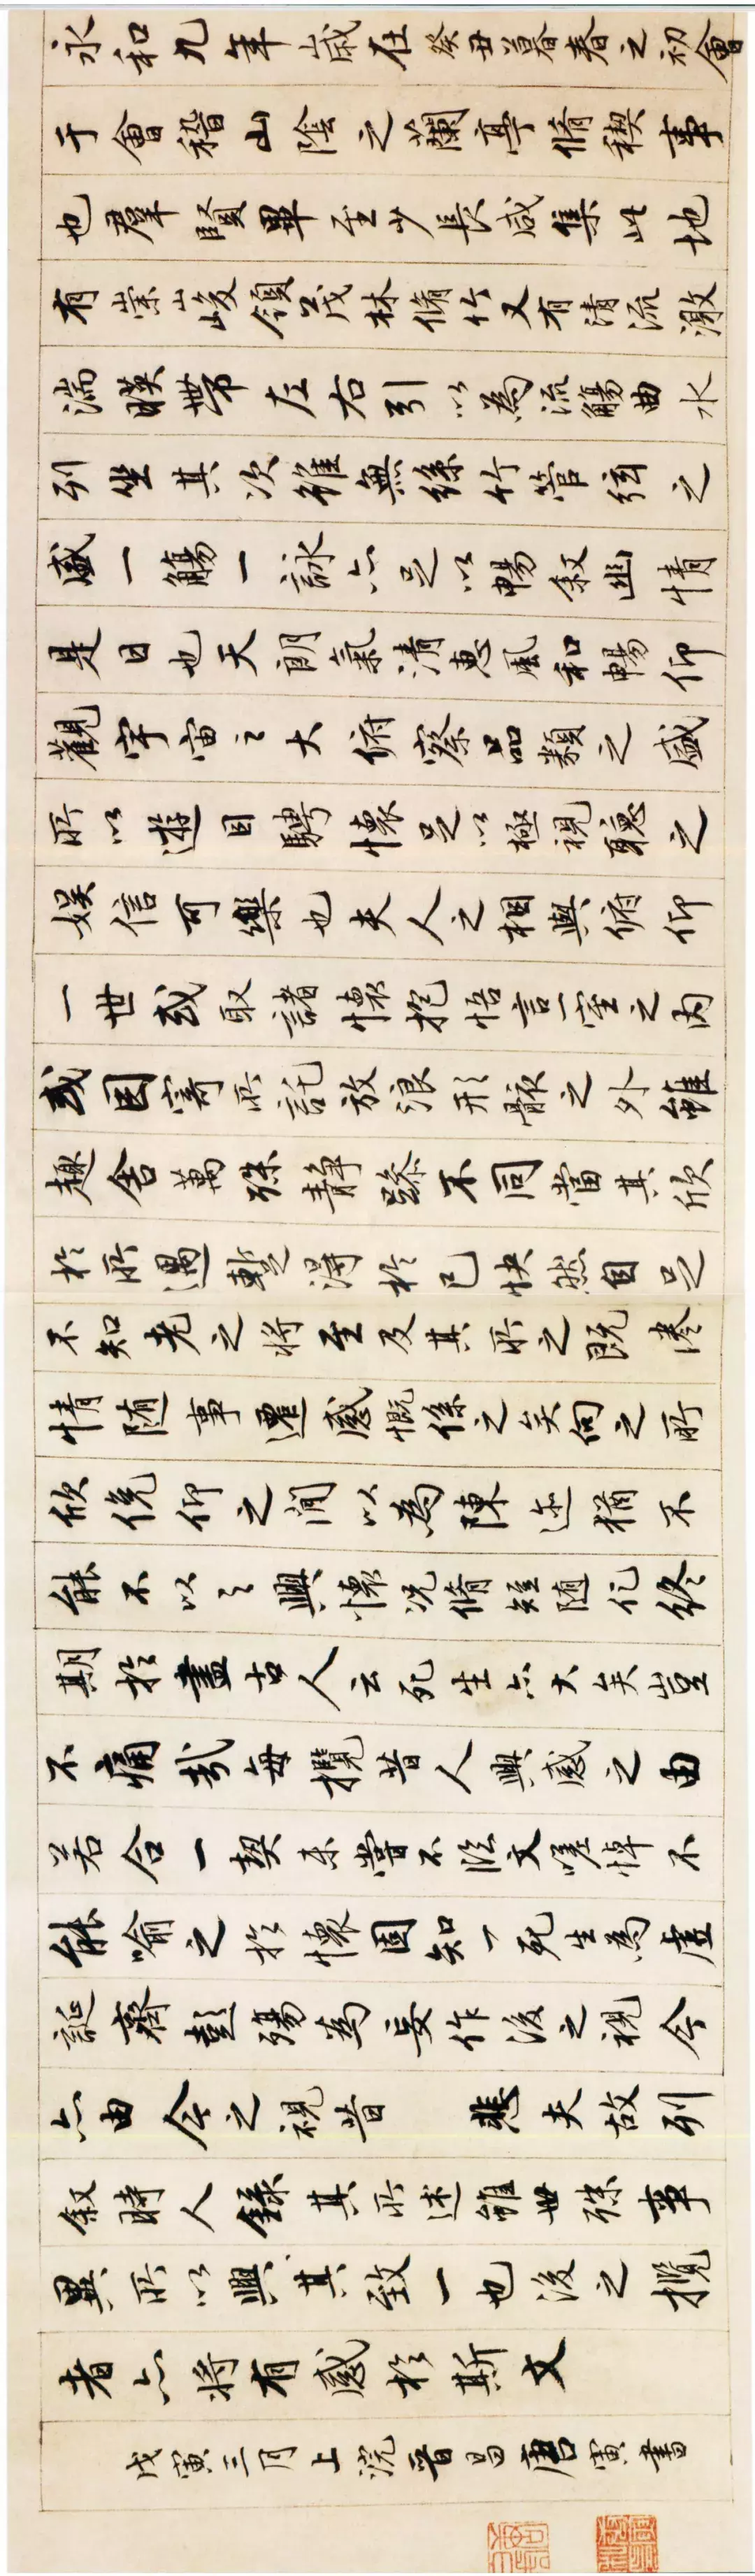 永和九年歲在癸丑暮春之初會
于會稽山陰之蘭亭脩稧事
也羣賢畢至少長咸集此地
有崇山峻領茂林脩竹又有清流激
湍暎帶左右引以為流觴曲水
列坐其次雖無絲竹管弦之
盛一觴一詠亦足以暢敘幽情
是日也天朗氣清惠風和暢仰
觀宇宙之大俯察品類之盛
所以遊目騁懷足以極視聽之
娛信可樂也夫人之相與俯仰
一世或取諸懷抱悟言一室之內
或因寄所託放浪形骸之外雖
趣舍萬殊靜躁不同當其欣
於所遇暫得於己快然自足
不知老之將至及其所之既惓
情隨事遷感慨係之矣向之所
欣俛仰之間以為陳迹猶不
能不以之興懷況脩短隨化終
期於盡古人云死生亦大矣豈
不痛哉每攬昔人興感之由
若合一契未嘗不臨文嗟悼不
能喻之於懷固知一死生為虛
誕齊彭殤為妄作後之視今
亦由今之視昔 悲夫故列
叙時人錄其所述雖世殊事
異所以興其致一也後之攬
者亦將有感於斯文
戊寅三月上浣晉昌唐寅書